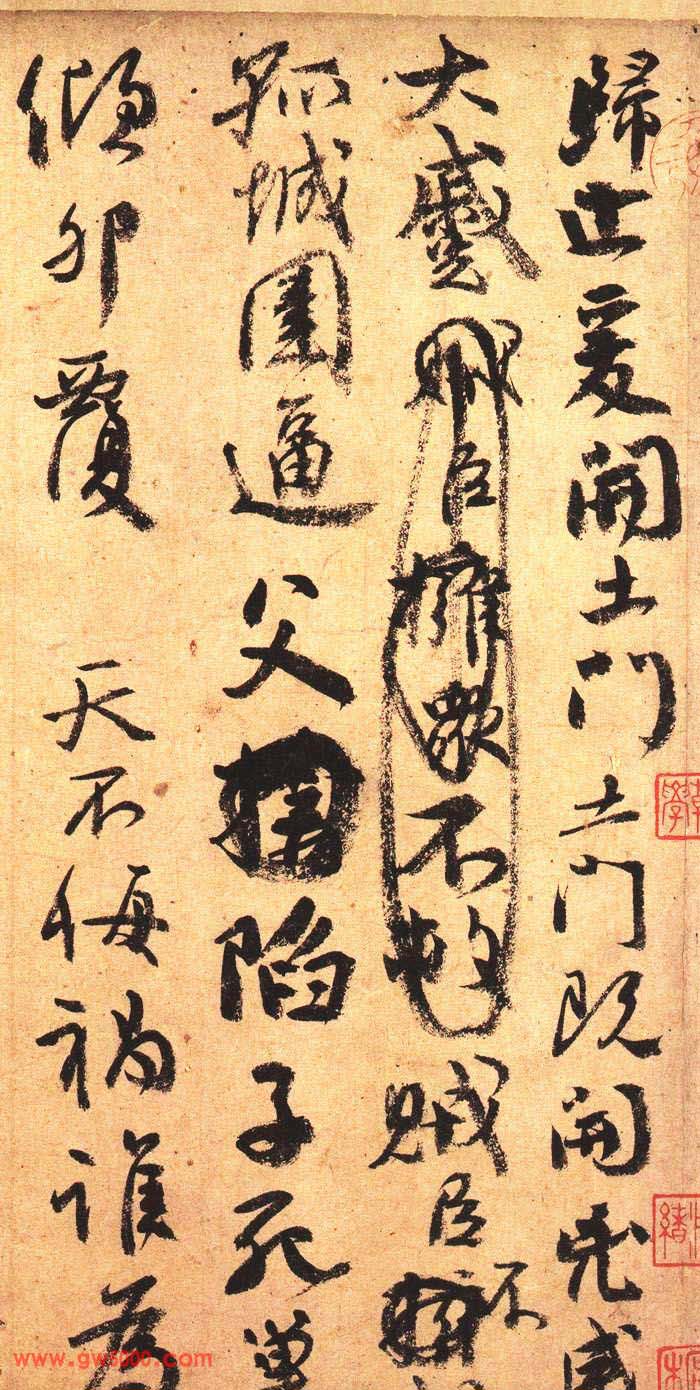 歸止爰開土門土門既開兇威
大蹙賊臣擁衆不救賊臣不
孤城圍逼父陷子死巢
傾卵覆 天不悔禍誰為
www.gw5000.com